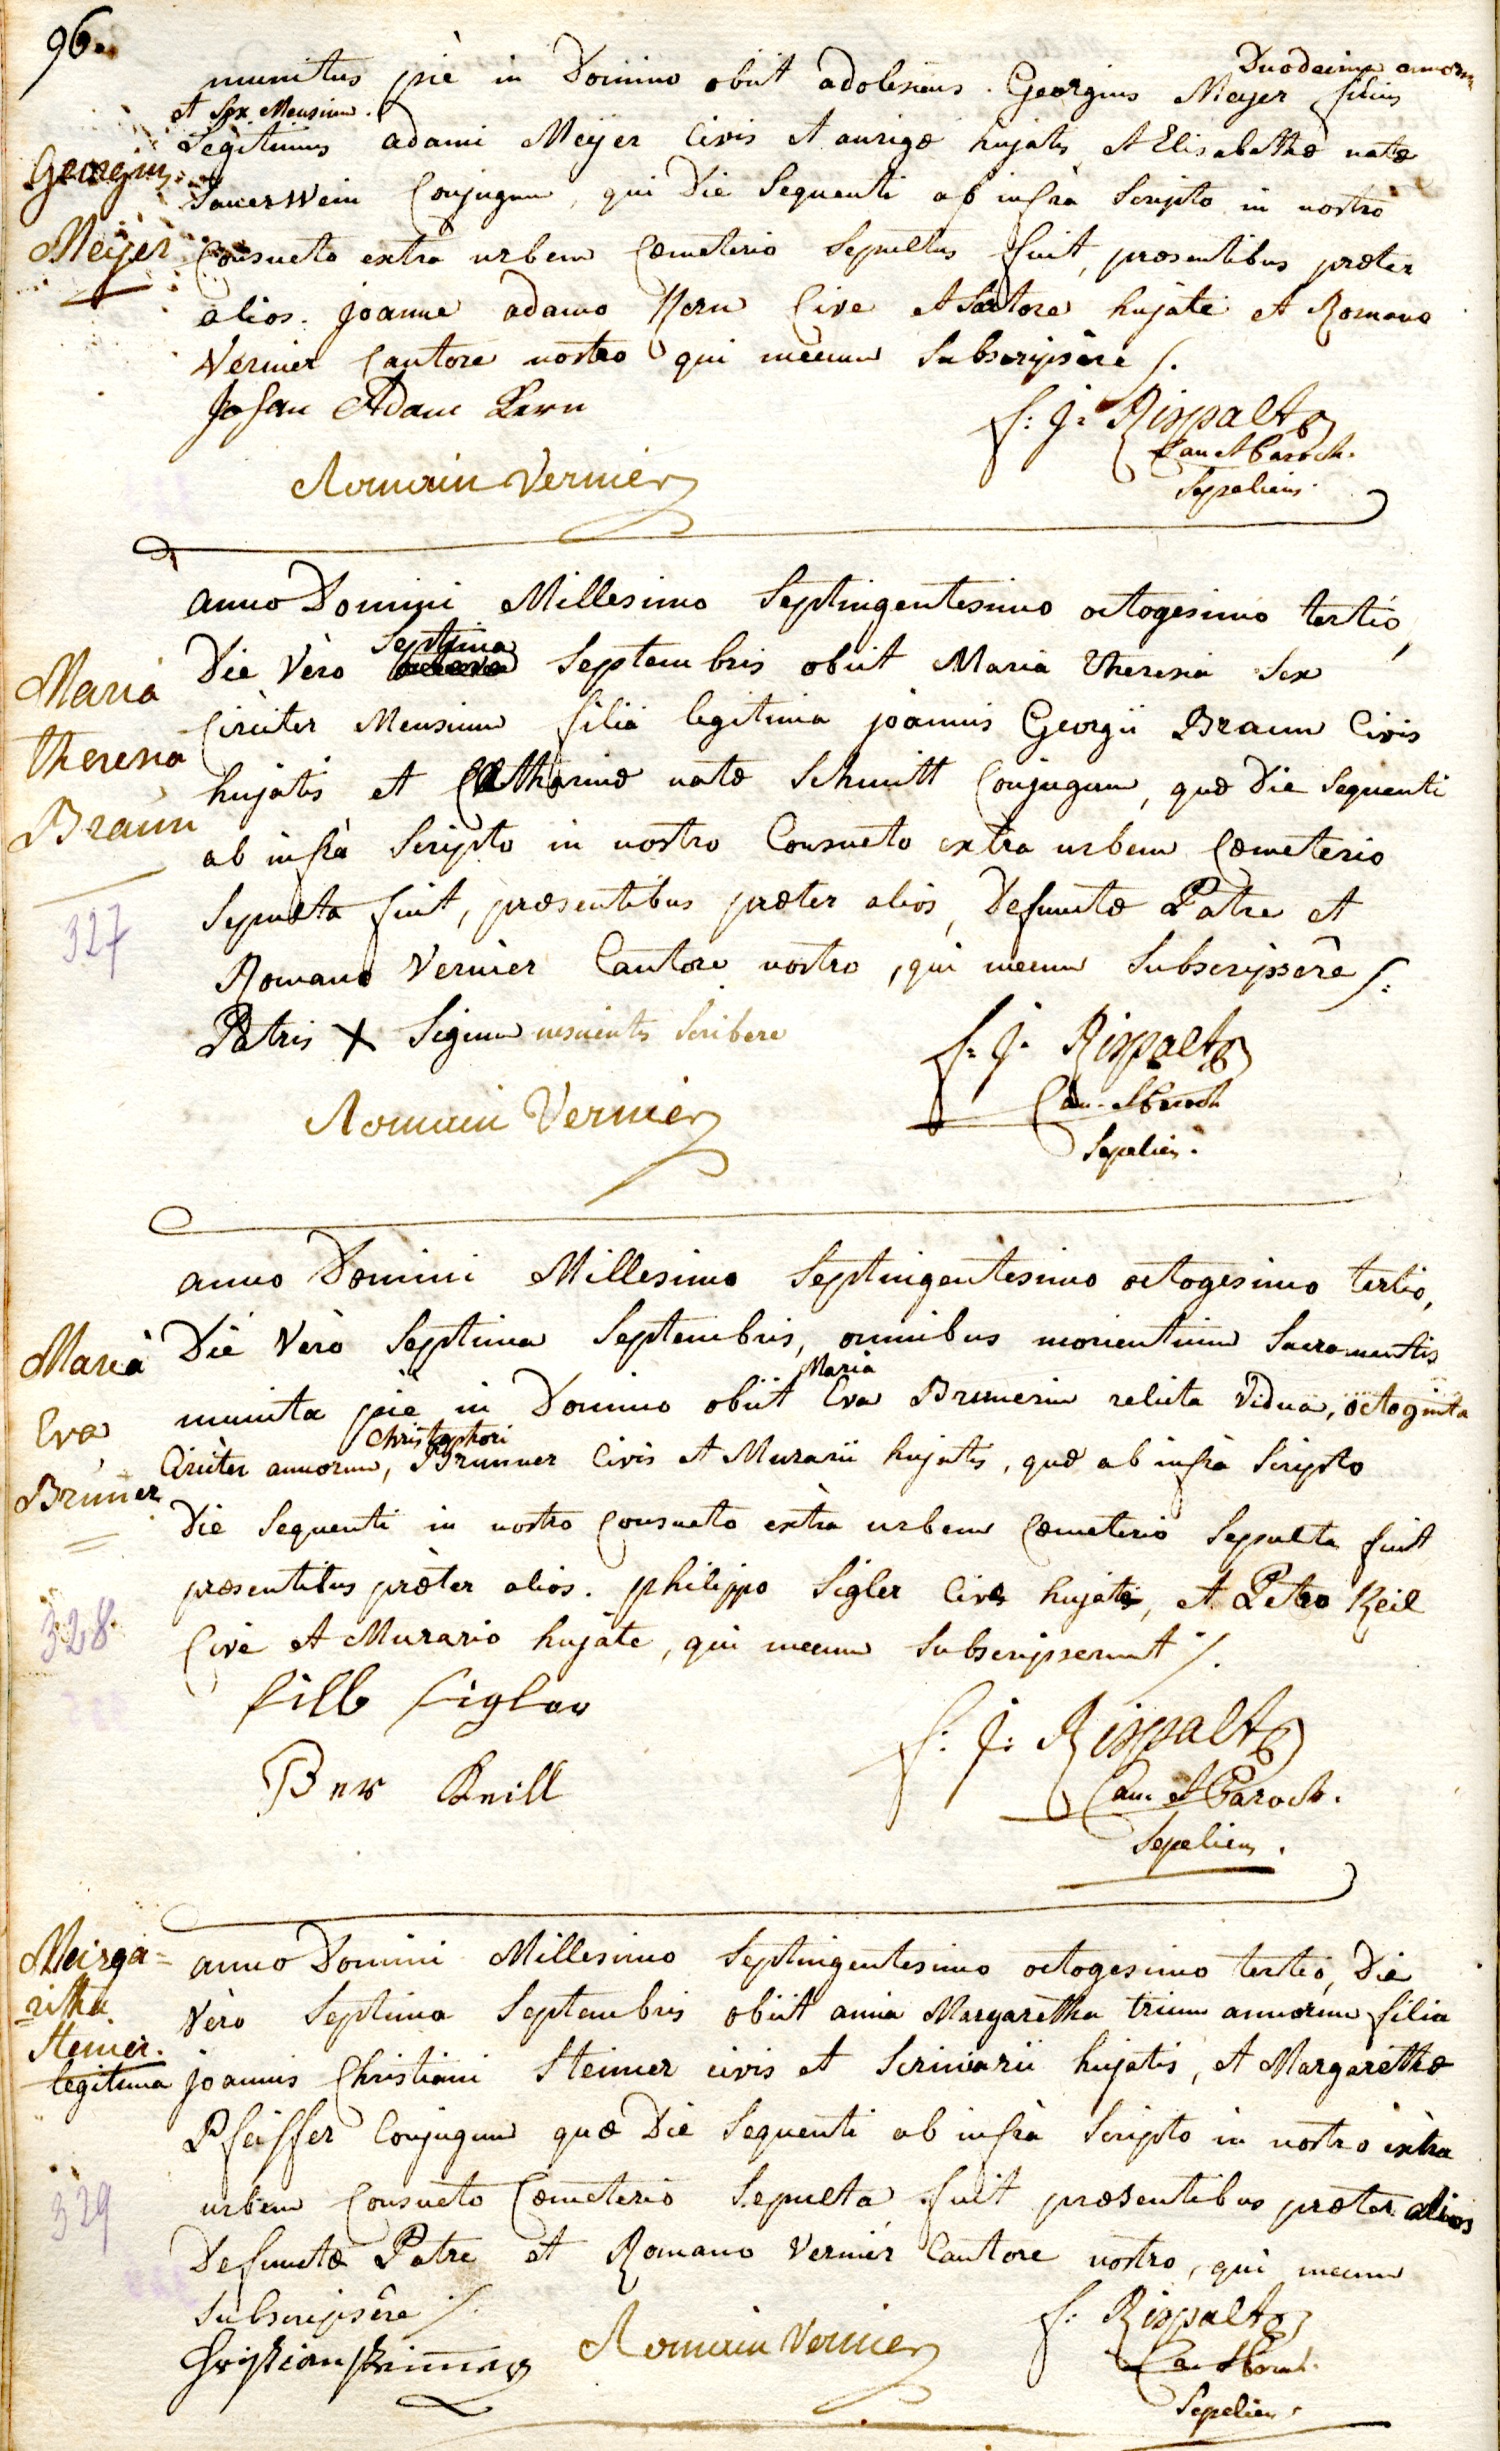 96.
munitus piè in Domino obiit adolescens Georgius Meyer filius
Duodecim annorum
et sex Mensium.
Legitimus adami Meyer Civis et aurigæ hujatis et Elisabethæ natæ
Georgius
Sauerwein Conjugum, qui Die Sequenti ab infrà Scripto in nostro
Meyer
Consueto extra urbem Cœmeterio Sepultus fuit, præsentibus præter
alios. joanne adamo Kern Cive et Sartore hujate et Romano
Vernier Cantore nostro qui mecum Subscripsêre /.
Johan Adam Kern
f: J: Rispalt
Can et Paroch.
Romain Vernier
Sepeliens.
anno Domini Millesimo Septingentesimo octogesimo tertio,
Septima
Die Vèro octava Septembris obiit Maria Theresia Sex
Maria
Circiter Mensium filia legitima joannis Georgii Braun Civis
Theresia
hujatis et Catharinæ natæ Schmitt Conjugum, quæ Die Sequenti
Braun
ab infrà Scripto in nostro Consueto extra urbem Cœmeterio
Sepulta fuit, præsentibus præter alios, Defunctæ Patre et
327
Romano Vernier Cantore nostro, qui mecum Subscripsêre /:
Patris X Signum nescientis Scribere
f: J: Rispalt
Can. et Paroch
Romain Vernier
Sepeliens.
anno Domini Millesimo Septingentesimo octogesimo tertio,
Die Vèro Septima Septembris, omnibus morientium Sacramentis
Maria
Maria
munita piè in Domino obiit Eva Brunerin relicta Vidua, octoginta
Eva
Christophori
Circiter annorum, Brunner Civis et Murarii hujatis, quæ ab infrà Scripto
Bruner
Die Sequenti in nostro Consueto extra urbem Cœmeterio Sepulta fuit
præsentibus præter alios. philippo Sigler Cive hujate, et Petro Keil
328
Cive et Murario hujate, qui mecum Subscripserunt /.
fillb Sigler
f: J: Rispalt
Keill
Can et Paroch.
Sepeliens.
Marga=
anno Domini Millesimo Septingentesimo octogesimo tertio, Die
ritha
Vèro Septima Septembris obiit anna Margaretha trium annorum filia
Steiner.
legitima joannis Christiani Steimer civis et Scriniarii hujatis, et Margarethæ
Pfeiffer Conjugum quæ Die Sequenti ab infrà Scripto in nostro extra
329
urbem Consueto Cœmeterio Sepulta fuit præsentibus præter alios
Defunctæ Patre et Romano Vernier Cantore nostro, qui mecum
Subscripsêre /.
f: Rispalt
Christian Steimer
Romain Vernier
Can et Paroch.
Sepeliens.